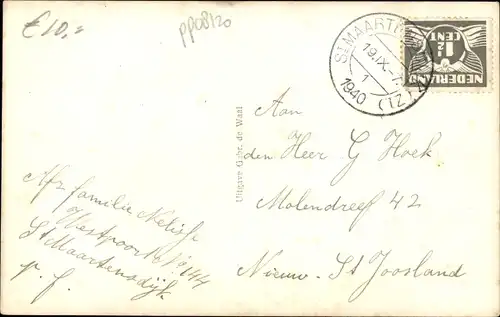 €10,=
pp08120
ST MAARTENSDIJK
19.IX.
1
1940
(TZ)
1½
CENT
NEDERLAND
Uitgave Gebr. de Waal
Aan
den Heer G Hoek
Molendreef 42
Nieuw-St Joosland
Afz familie
Westpoort 144
St Maartensdijk
p. f.